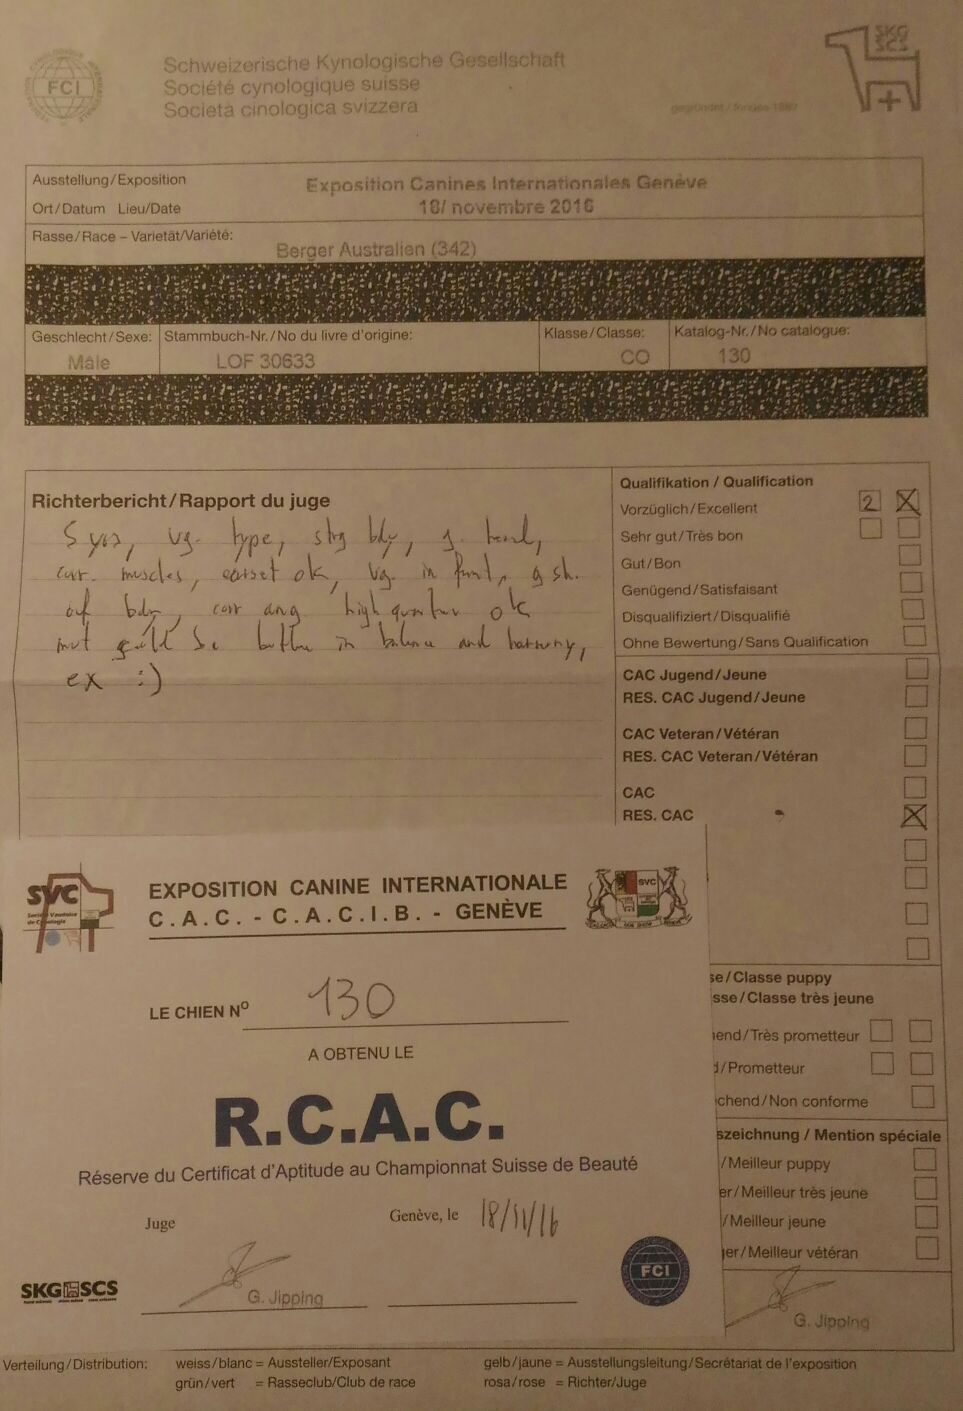 FCI
Schweizerische Kynologische Gesellschaft
Société cynologique suisse
Società cinologica svizzera
gegründet / fondée 1883
SKG
SCS
Ausstellung/Exposition
Exposition Canines Internationales Genève
Ort/Datum Lieu/Date
18/ novembre 2016
Rasse/Race – Varietät/Variété:
Berger Australien (342)
Geschlecht/Sexe: Stammbuch-Nr./No du livre d'origine: Klasse/Classe: Katalog-Nr./No catalogue:
Mâle LOF 30633 CO 130
Richterbericht/Rapport du juge
5 yrs, vg. type, strg bdy, g. head,
corr. muscles, earset ok, vg. in front, g sh.
of bdy, corr ang high quarter ok
better in balance and harmony,
ex :)
Qualifikation / Qualification
Vorzüglich/Excellent 2 X
Sehr gut/Très bon
Gut/Bon
Genügend/Satisfaisant
Disqualifiziert/Disqualifié
Ohne Bewertung/Sans Qualification
CAC Jugend/Jeune
RES. CAC Jugend/Jeune
CAC Veteran/Vétéran
RES. CAC Veteran/Vétéran
CAC
RES. CAC X
se/Classe puppy
sse/Classe très jeune
hend/Très prometteur
d/Prometteur
chend/Non conforme
szeichnung / Mention spéciale
/Meilleur puppy
er/Meilleur très jeune
/Meilleur jeune
er/Meilleur vétéran
G. Jipping
SVC
Société Vaudoise
de Cynologie
EXPOSITION CANINE INTERNATIONALE
C.A.C. - C.A.C.I.B. - GENÈVE
SVC
LE CHIEN Nº 130
A OBTENU LE
R.C.A.C.
Réserve du Certificat d'Aptitude au Championnat Suisse de Beauté
Juge Genève, le 18/11/16
G. Jipping
SKG SCS
FCI
Verteilung/Distribution: weiss/blanc = Aussteller/Exposant gelb/jaune = Ausstellungsleitung/Secrétariat de l'exposition
grün/vert = Rasseclub/Club de race rosa/rose = Richter/Juge